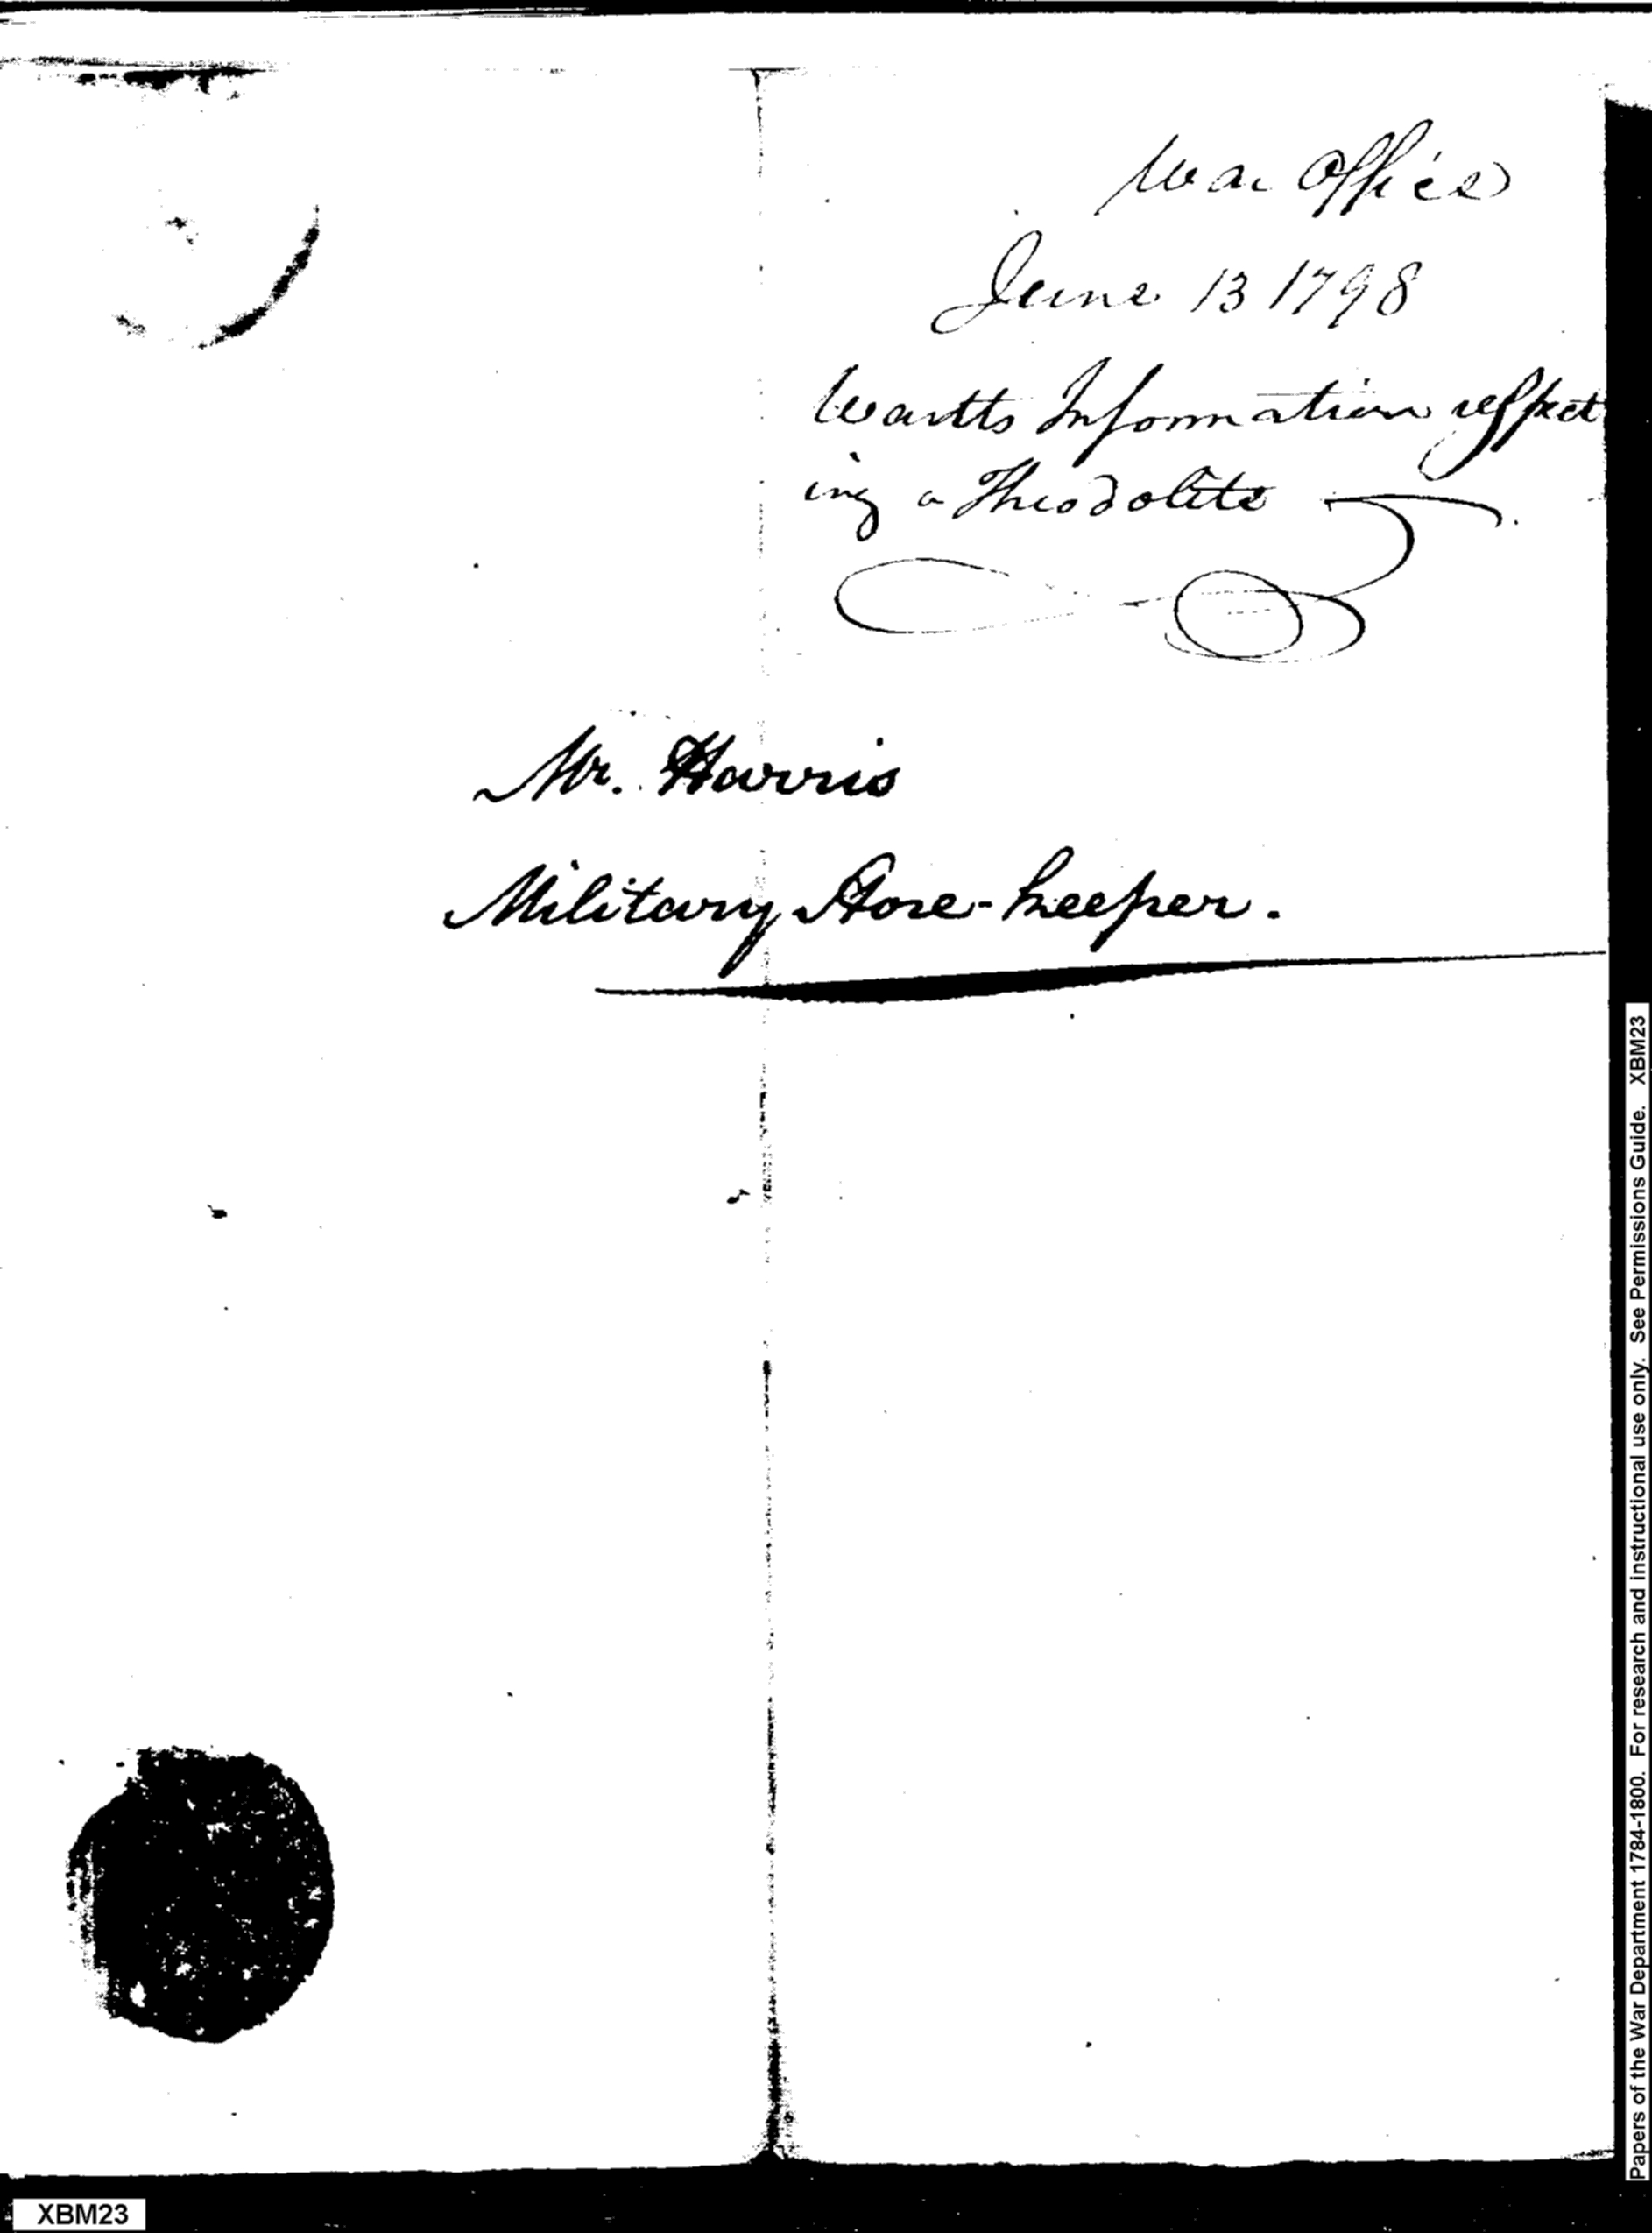 War Office
June 13 1798
Wantts Information respect
ing a Theodolite
Mr. Harris
Military Store-keeper.
Papers of the War Department 1784-1800. For research and instructional use only. See Permissions Guide. XBM23
XBM23